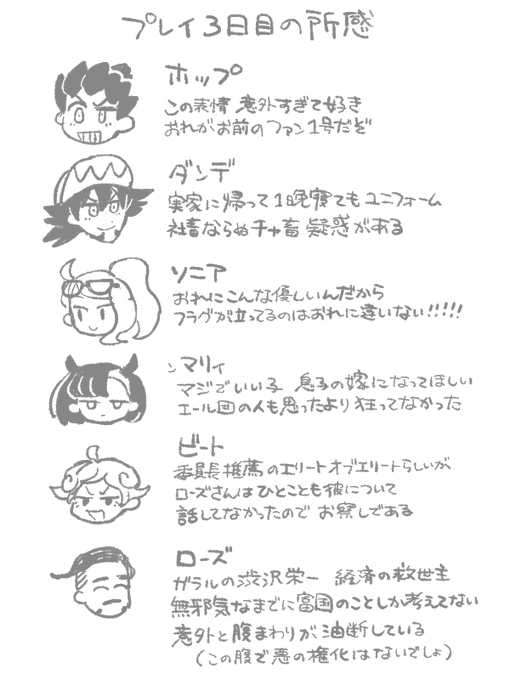 プレイ3日目の所感
ホップ
この表情 意外すぎて好き
おれがお前のファン1号だぞ
ダンデ
実家に帰って1晩寝てもユニフォーム
社畜ならぬチャ畜疑惑がある
ソニア
おれにこんな優しいんだから
フラグが立ってるのはおれに違いない!!!!!
マリィ
マジでいい子 息子の嫁になってほしい
エール団の人も思ったより狂ってなかった
ビート
委員長推薦のエリートオブエリートらしいが
ローズさんはひとことも彼について
話してなかったので お察しである
ローズ
ガラルの渋沢栄一 経済の救世主
無邪気なまでに富国のことしか考えてない
意外と腹まわりが油断している
(この腹で悪の権化はないでしょ)